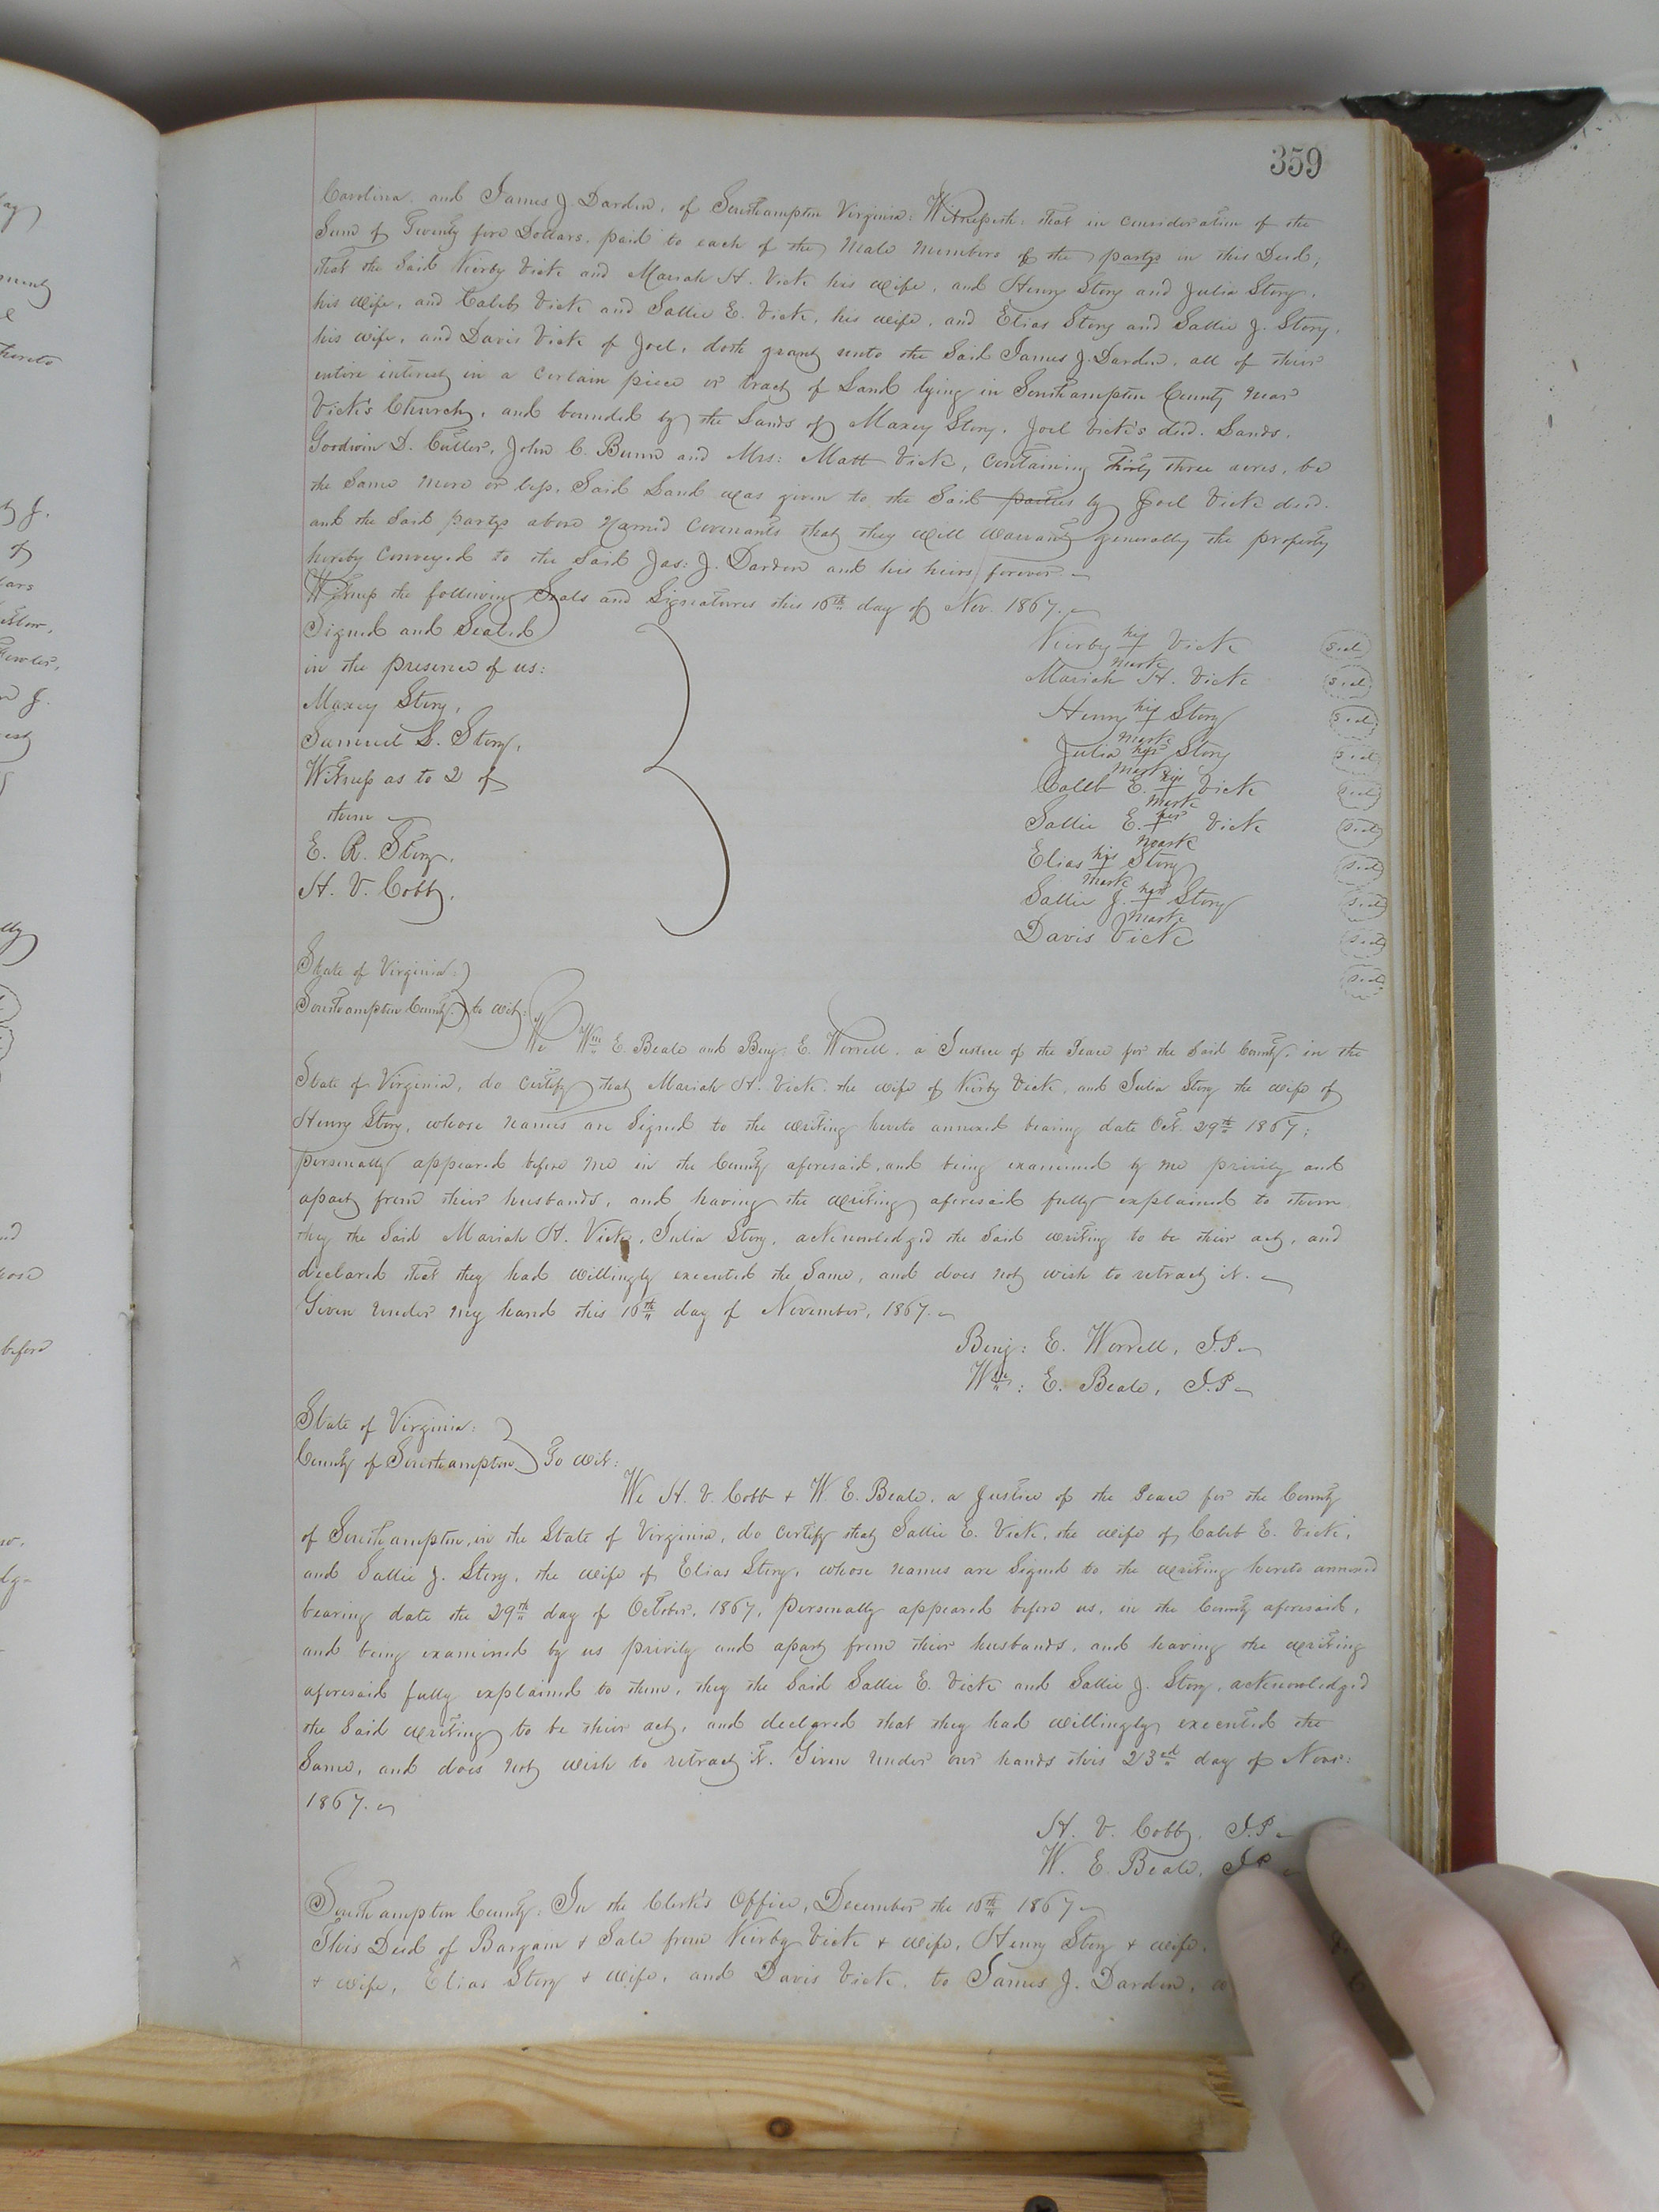 359
Carolina, and James J. Darden, of Southampton Virginia: Witnesseth, that in consideration of the
Sum of Twenty five Dollars, paid to each of the Male Members of the partys in this Deed,
that the Said Kierby Vick and Mariah H. Vick his wife, and Henry Story and Julia Story,
his wife, and Caleb Vick and Sallie E. Vick, his wife, and Elias Story and Sallie J. Story,
his wife, and Davis Vick of Joel, doth grant unto the Said James J. Darden, all of their
entire interest in a certain piece or tract of Land lying in Southampton County near
Vick's Church, and bounded by the Lands of Maxey Story, Joel Vick's decd. Lands,
Goodwin D. Cutler, John C. Bunn and Mrs: Matt Vick, containing Thirty three acres, be
the Same more or less. Said Land was given to the Said parties by Joel Vick decd.
and the Said partys above Named Covenants that they will Warrant generally the property
hereby conveyed to the Said Jas: J. Darden and his heirs forever.
Witness the following Seals and Signatures this 16th day of Nov. 1867.
Signed and Sealed
in the presence of us:
Maxey Story,
Samuel S. Story,
Witness as to 2 of
them
E. R. Story,
H. V. Cobb,
Kierby his + mark Vick Seal
Mariah H. Vick Seal
Henry his + mark Story Seal
Julia her + mark Story Seal
Caleb E. his + mark Vick Seal
Sallie E. her + mark Vick Seal
Elias his + mark Story Seal
Sallie J. her + mark Story Seal
Davis Vick Seal
Seal
State of Virginia:
Southampton County: to wit:
We Wm E. Beale and Benj: E. Worrell, a Justice of the Peace for the Said County, in the
State of Virginia, do certify that Mariah H. Vick, the wife of Kierby Vick, and Julia Story the wife of
Henry Story, whose names are Signed to the writing hereto annexed bearing date Oct. 29th 1867;
personally appeared before me in the County aforesaid, and being examined by me privily and
apart from their husbands, and having the writing aforesaid fully explained to them
they the Said Mariah H. Vick, Julia Story, acknowledged the Said writing to be their act, and
declared that they had willingly executed the Same, and does not wish to retract it.
Given under my hand this 16th day of November, 1867.
Benj: E. Worrell, J.P.
Wm: E. Beale, J.P.
State of Virginia:
County of Southampton To wit:
We H. V. Cobb & W. E. Beale, a Justice of the Peace for the County
of Southampton, in the State of Virginia, do certify that Sallie E. Vick, the wife of Caleb E. Vick,
and Sallie J. Story, the wife of Elias Story, whose names are Signed to the writing hereto annexed
bearing date the 29th day of October, 1867, personally appeared before us, in the County aforesaid,
and being examined by us privily and apart from their husbands, and having the writing
aforesaid fully explained to them, they the Said Sallie E. Vick and Sallie J. Story, acknowledged
the Said writing to be their act, and declared that they had willingly executed the
Same, and does not wish to retract it. Given under our hands this 23rd day of Novr:
1867.
H. V. Cobb, J.P.
W. E. Beale, J.P.
Southampton County: In the Clerk's Office, December the 16th 1867
This Deed of Bargain & Sale from Kierby Vick & wife, Henry Story & wife,
& wife, Elias Story & wife, and Davis Vick, to James J. Darden,